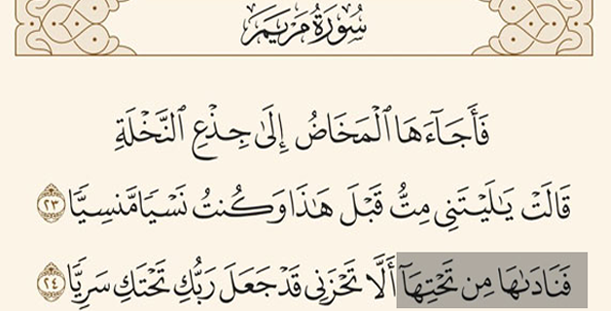 سُورَةُ مَرْيَمَ
فَأَجَآءَهَا ٱلْمَخَاضُ إِلَىٰ جِذْعِ ٱلنَّخْلَةِ
قَالَتْ يَـٰلَيْتَنِى مِتُّ قَبْلَ هَـٰذَا وَكُنتُ نَسْيًا مَّنسِيًّا ٢٣
فَنَادَىٰهَا مِن تَحْتِهَآ أَلَّا تَحْزَنِى قَدْ جَعَلَ رَبُّكِ تَحْتَكِ سَرِيًّا ٢٤